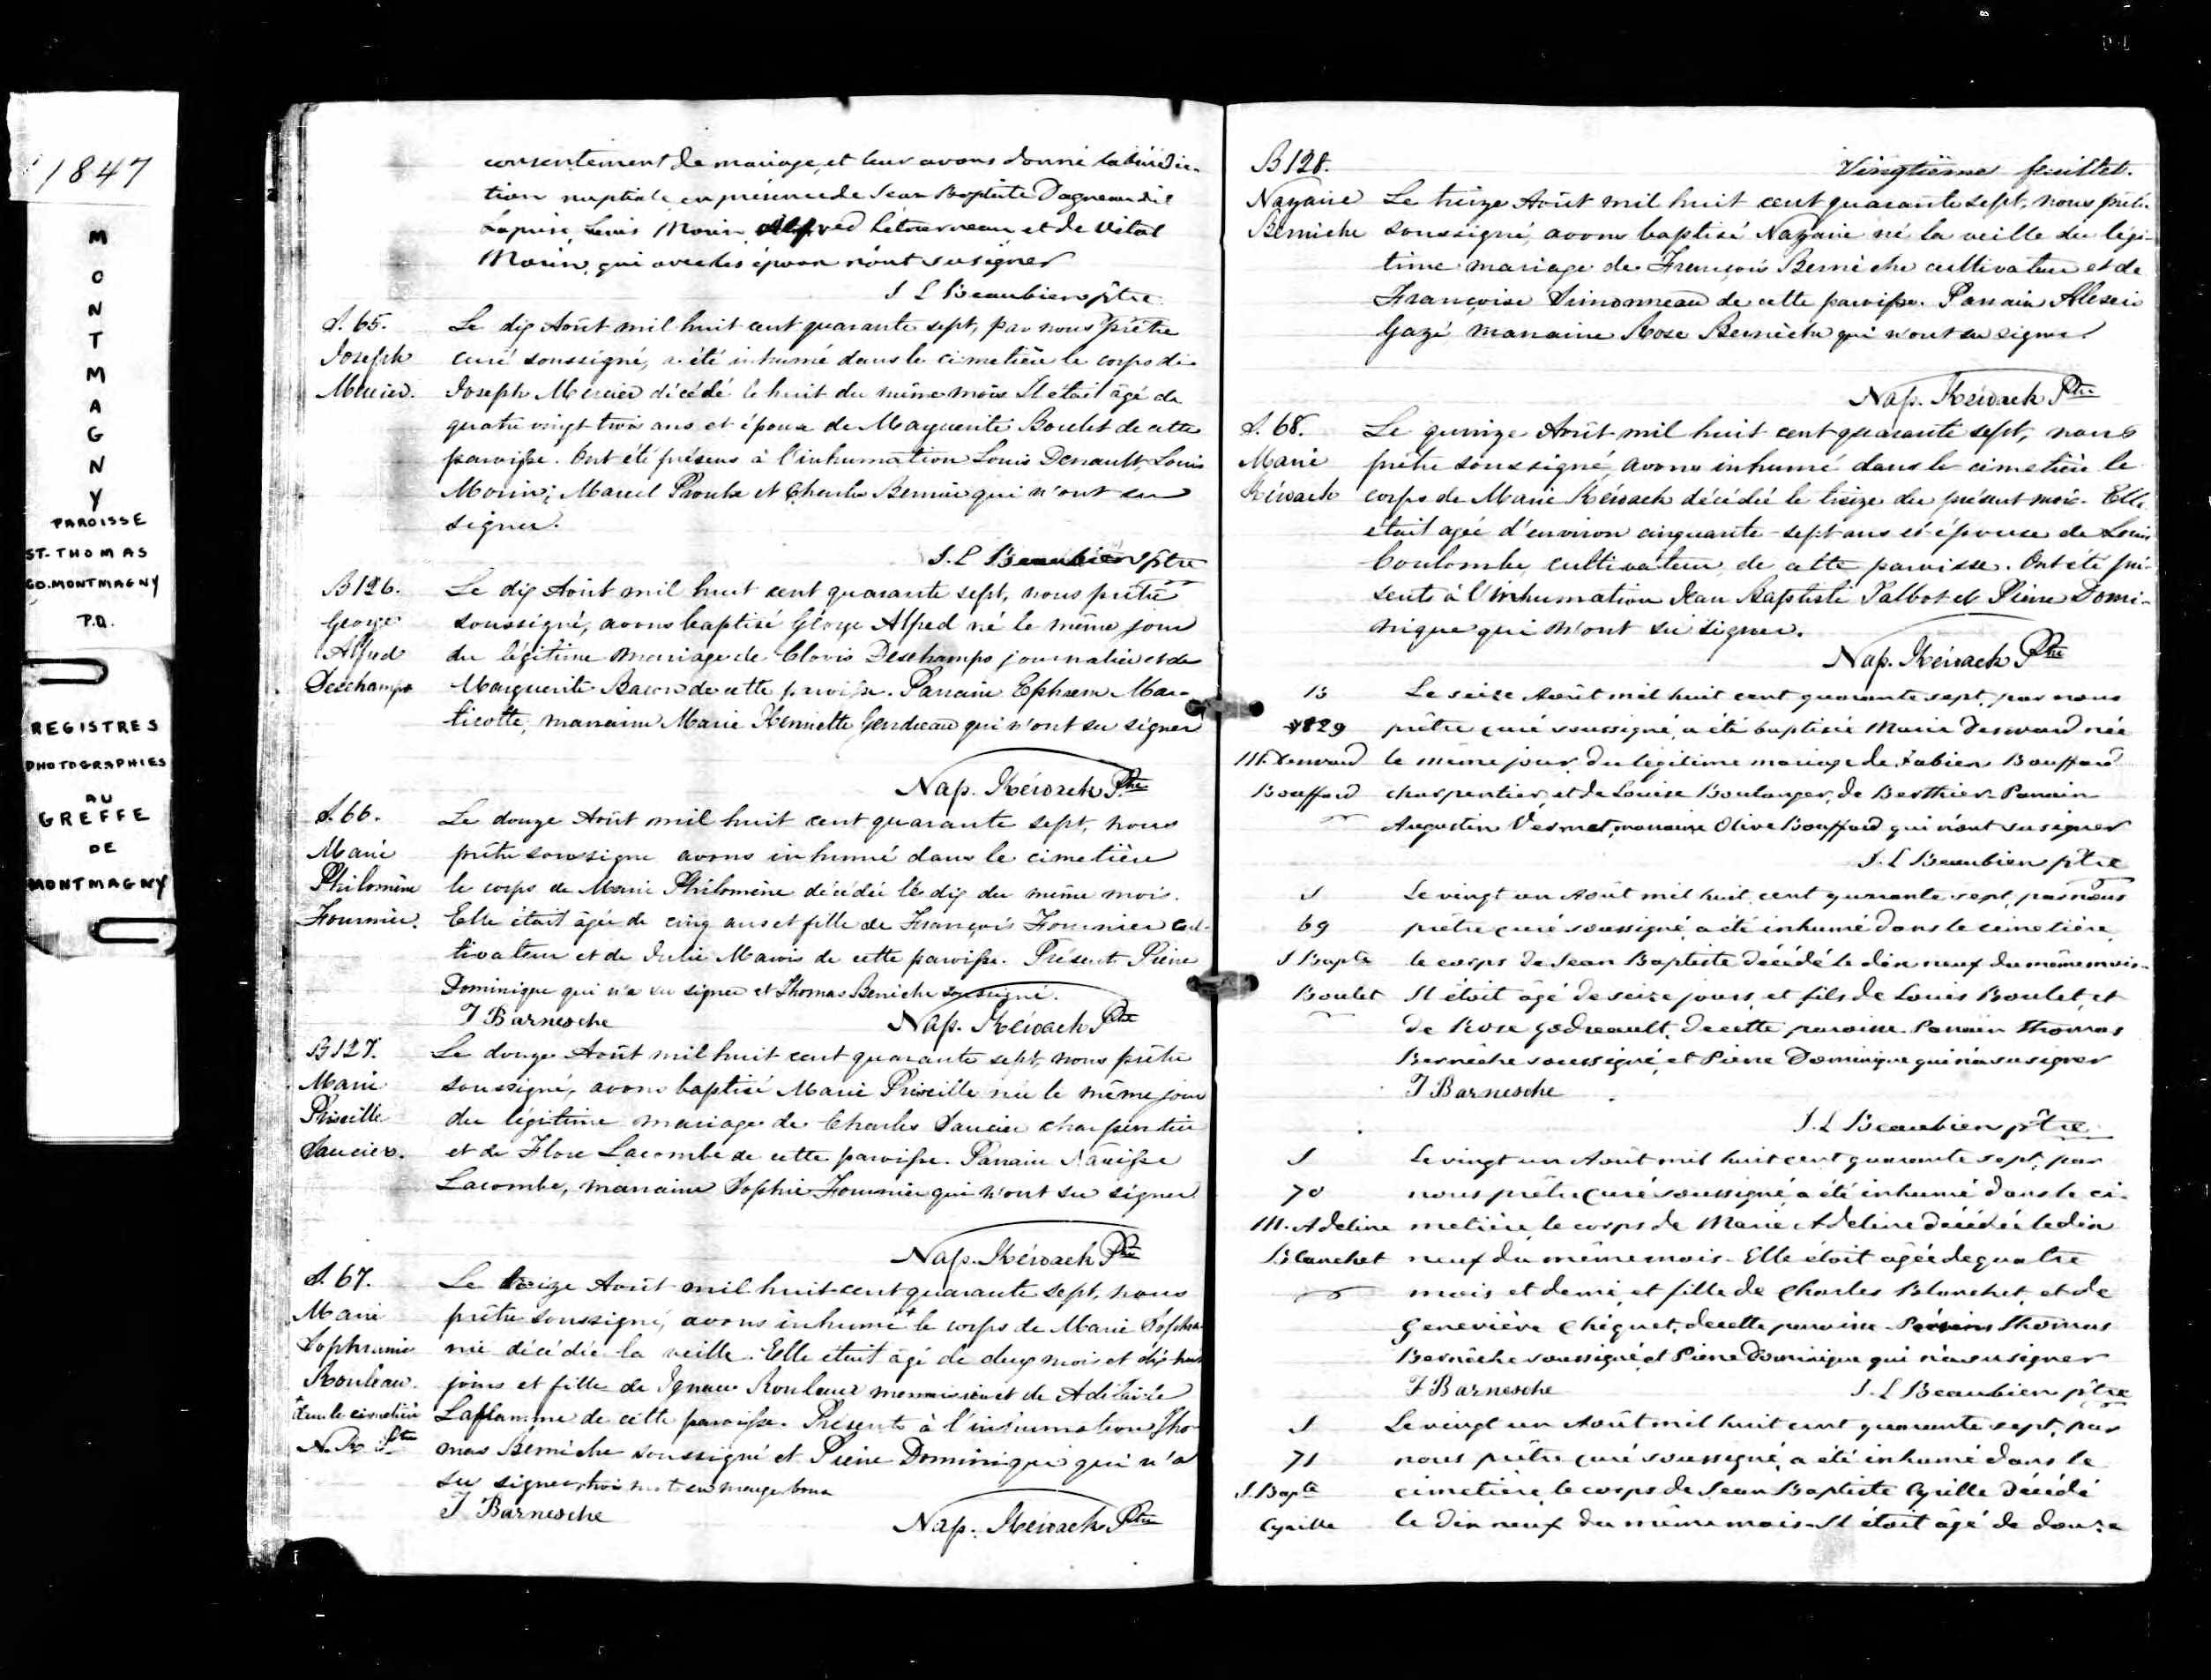 1847
M
O
N
T
M
A
G
N
Y
PAROISSE
ST-THOMAS
CO. MONTMAGNY
P.Q.
REGISTRES
PHOTOGRAPHIES
AU
GREFFE
DE
MONTMAGNY
consentement de mariage, et leur avons donné la bénédic-
tion nuptiale en présence de Jean Baptiste Dagneau dit
Laprise, Louis Morin, Alfred Létourneau et de Vital
Morin, qui avec les époux n'ont su signer
J L Beaubien ptre
S. 65.
Joseph
Mercier.
Le dix Août mil huit cent quarante sept, par nous prêtre
curé soussigné, a été inhumé dans le cimetière le corps de
Joseph Mercier décédé le huit du même mois Il était âgé de
quatre vingt trois ans et époux de Marguerite Boulet de cette
paroisse. Ont été présens à l'inhumation Louis Denault, Louis
Morin, Marcel Proulx et Charles Bernier qui n'ont su
signer.
J. L Beaubien ptre
B 126.
George
Alfred
Deschamps
Le dix Août mil huit cent quarante sept, nous prêtre
soussigné, avons baptisé George Alfred né le même jour
du légitime mariage de Clovis Deschamps journalier et de
Marguerite Bacon de cette paroisse. Parrain Ephrem Mar-
ticotte, marraine Marie Henriette Gendreau qui n'ont su signer
Nap. Kéroack Ptre
S. 66.
Marie
Philomène
Fournier.
Le douze Août mil huit cent quarante sept, nous
prêtre soussigné avons inhumé dans le cimetière
le corps de Marie Philomène décédée le dix du même mois.
Elle était âgée de cinq ans et fille de François Fournier cul-
tivateur et de Julie Marois de cette paroisse. Présents Pierre
Dominique qui n'a su signer et Thomas Berniche soussigné.
T Barnesche Nap. Kéroack Ptre
B 127.
Marie
Priscille
Saucier.
Le douze Août mil huit cent quarante sept, nous prêtre
soussigné, avons baptisé Marie Priscille née le même jour
du légitime mariage de Charles Saucier charpentier
et de Flore Lacombe de cette paroisse. Parrain Narcisse
Lacombe, marraine Sophie Fournier qui n'ont su signer
Nap. Kéroack Ptre
S. 67.
Marie
Sophranie
Rouleau.
+ dans le cimetière
N. K Ptre
Le treize Août mil huit-cent quarante sept, nous
prêtre soussigné, avons inhumé + le corps de Marie Sophra-
nie décédée la veille. Elle était âgé de deux mois et dix huit
jours et fille de Ignace Rouleau menuisier et de Adélaide
Laflamme de cette paroisse. Présents à l'inhumation Tho-
mas Berniche soussigné et Pierre Dominique qui n'a
su signer, trois mots en marge bons
T Barnesche Nap. Kéroack Ptre
B 128.
Vingtième feuillet.
Nazaire
Berniche
Le treize Août mil huit cent quarante sept, nous prêtre
soussigné, avons baptisé Nazaire né la veille du légi-
time mariage de François Berniche cultivateur et de
Françoise Simonneau de cette paroisse. Parrain Alexis
Gazé marraine Rose Berniche qui n'ont su signer
Nap. Kéroack Ptre
S. 68.
Marie
Kéroack
Le quinze Août mil huit cent quarante sept, nous
prêtre soussigné, avons inhumé dans le cimetière le
corps de Marie Kéroack décédée le treize du présent mois. Elle
était agée d'environ cinquante-sept ans et épouse de Louis
Coulombe, cultivateur, de cette paroisse. Ont été pré-
sents à l'inhumation Jean Baptiste Talbot et Pierre Domi-
nique qui n'ont su signer.
Nap. Kéroack Ptre
B
129
M.
Bouffard
Le seize Août mil huit cent quarante sept, par nous
prêtre curé soussigné, a été baptisée Marie née
le même jour, du légitime mariage de Fabien Bouffard
charpentier, et de Louise Boulanger, de Berthier. Parrain
Augustin Vermet, marraine Olive Bouffard qui n'ont su signer
J. L Beaubien ptre
S
69
J Bapte
Boulet
Le vingt un Août mil huit cent quarante sept, par nous
prêtre curé soussigné, a été inhumé dans le cimetière
le corps de Jean Baptiste décédé le dix neuf du même mois.
Il étoit âgé de seize jours, et fils de Louis Boulet, et
de Rose Godreault, de cette paroisse. Parrain Thomas
Bernèche soussigné, et Pierre Dominique qui n'a su signer
T Barnesche
J. L Beaubien ptre
S
70
M. Adeline
Blanchet
Le vingt un Août mil huit cent quarante sept, par
nous prêtre curé soussigné, a été inhumé dans le ci-
metière, le corps de Marie Adeline décédée le dix
neuf du même mois. Elle étoit âgée de quatre
mois et demi, et fille de Charles Blanchet, et de
Geneviève Chiquet, de cette paroisse. Thomas
Bernèche soussigné, et Pierre Dominique qui n'a su signer
T Barnesche J. L Beaubien ptre
S
71
J. Bapte
Cyrille
Le vingt un Août mil huit cent quarante sept, par
nous prêtre curé soussigné, a été inhumé dans le
cimetière, le corps de Jean Baptiste Cyrille décédé
le dix neuf du même mois. Il étoit âgé de douze